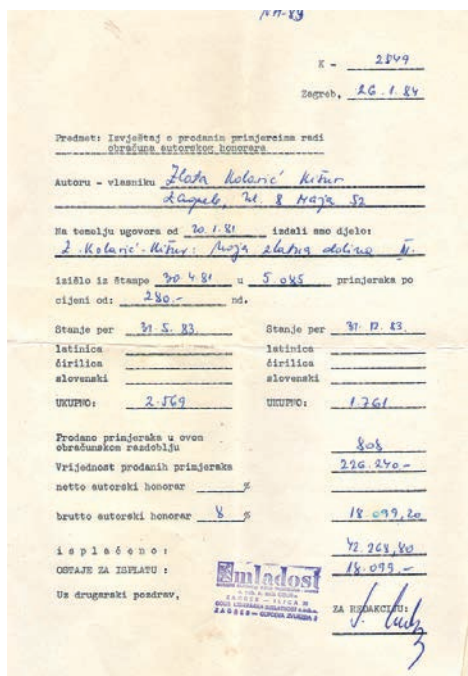 K - 2849
Zagreb, 26.1.84
Predmet: Izvještaj o prodanim primjercima radi
obračuna autorskog honorara
Autoru - vlasniku Zlata Kolarić Kišur
Zagreb, Ul. 8 Maja 52
Na temelju ugovora od 20.1.81 izdali smo djelo:
Z. Kolarić-Kišur: Moja zlatna dolina II.
izišlo iz štampe 30.4.81 u 5.085 primjeraka po
cijeni od: 280.- nd.
Stanje per 31.5.83. Stanje per 31.12.83.
latinica latinica
ćirilica ćirilica
slovenski slovenski
UKUPNO: 2.569 UKUPNO: 1.761
Prodano primjeraka u ovom
obračunskom razdoblju 808
Vrijednost prodanih primjeraka 226.240.-
netto autorski honorar %
brutto autorski honorar 8 % 18.099,20
isplaćeno: 42.268,80
OSTAJE ZA ISPLATU : 18.099.-
Uz drugarski pozdrav,
mladost
ZAGREB - ILICA 30
ZA REDAKCIJU: